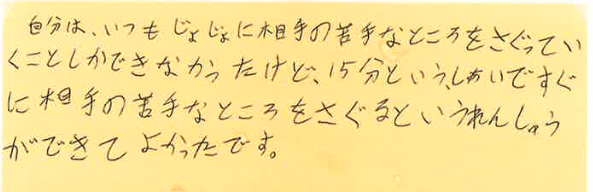 自分は、いつもじょじょに相手の苦手なところをさぐってい
くことしかできなかったけど、15分という、しあいですぐ
に相手の苦手なところをさぐるというれんしゅう
ができてよかったです。